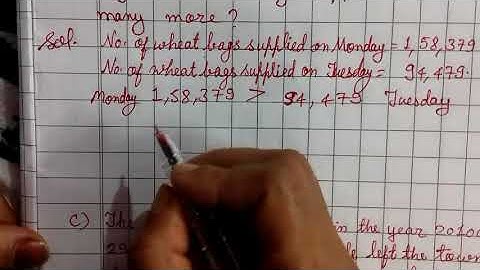 many more?
Sol. No. of wheat bags supplied on Monday = 1,58,379
No. of wheat bags supplied on Tuesday = 94,479.
Monday 1,58,379 > 94,479 Tuesday
c) The in the year 2010
29 left the town